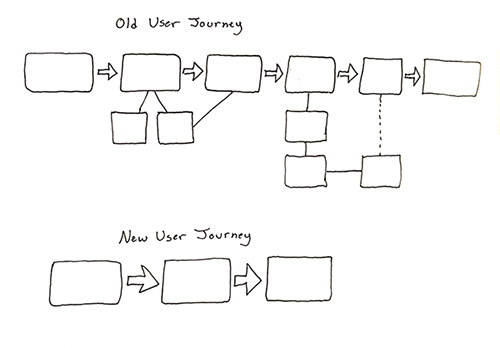 Old User Journey
New User Journey